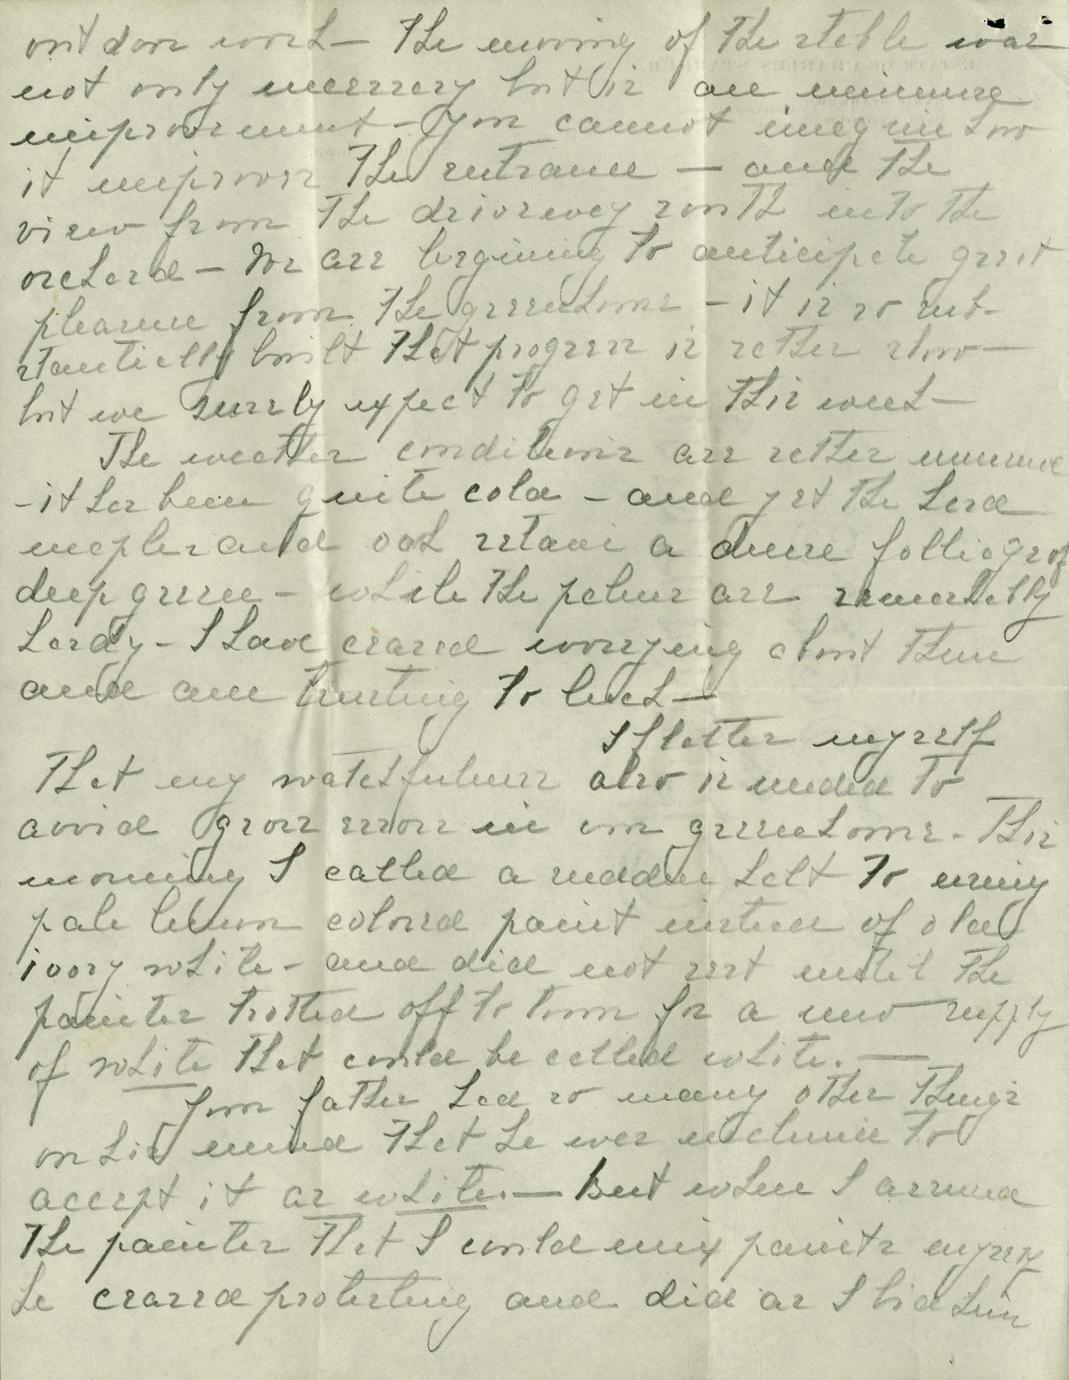 outdoor work — The moving of the stable was
not only necessary but is an immense
improvement — You cannot imagine how
it improves the entrance — and the
view from the driveway south into the
orchard — We are beginning to anticipate great
pleasure from the greenhouse — it is so sub-
stantially built that progress is rather slow —
but we surely expect to get in this week —
The weather conditions are rather unusual
- it has been quite cold - and yet the hard
maples and oak retain a dense folliage of
deep green - while the palms are remarkably
hardy - I have ceased worrying about them
and am trusting to luck —
I flatter myself
that my watchfulness also is needed to
avoid gross errors in our greenhouse. This
morning I called a sudden halt to using
pale lemon colored paint instead of old
ivory white - and did not rest until the
painter trotted off to town for a new supply
of white that could be called white. —
Your father had so many other things
on his mind that he was inclined to
accept it as white. — But when I assured
the painter that I could mix paints myself
he ceased protesting and did as I bid him